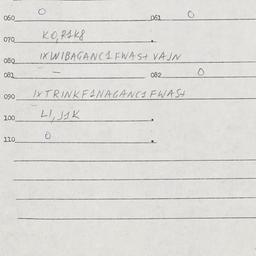 050 0 051 0
070 KO,R1K8
080 1XWIBAGANC1FWAS+ VAJN
081 — 082 0
090 1XTRINKF1NAGANC1FWAS+
100 LI,J1K
110 0